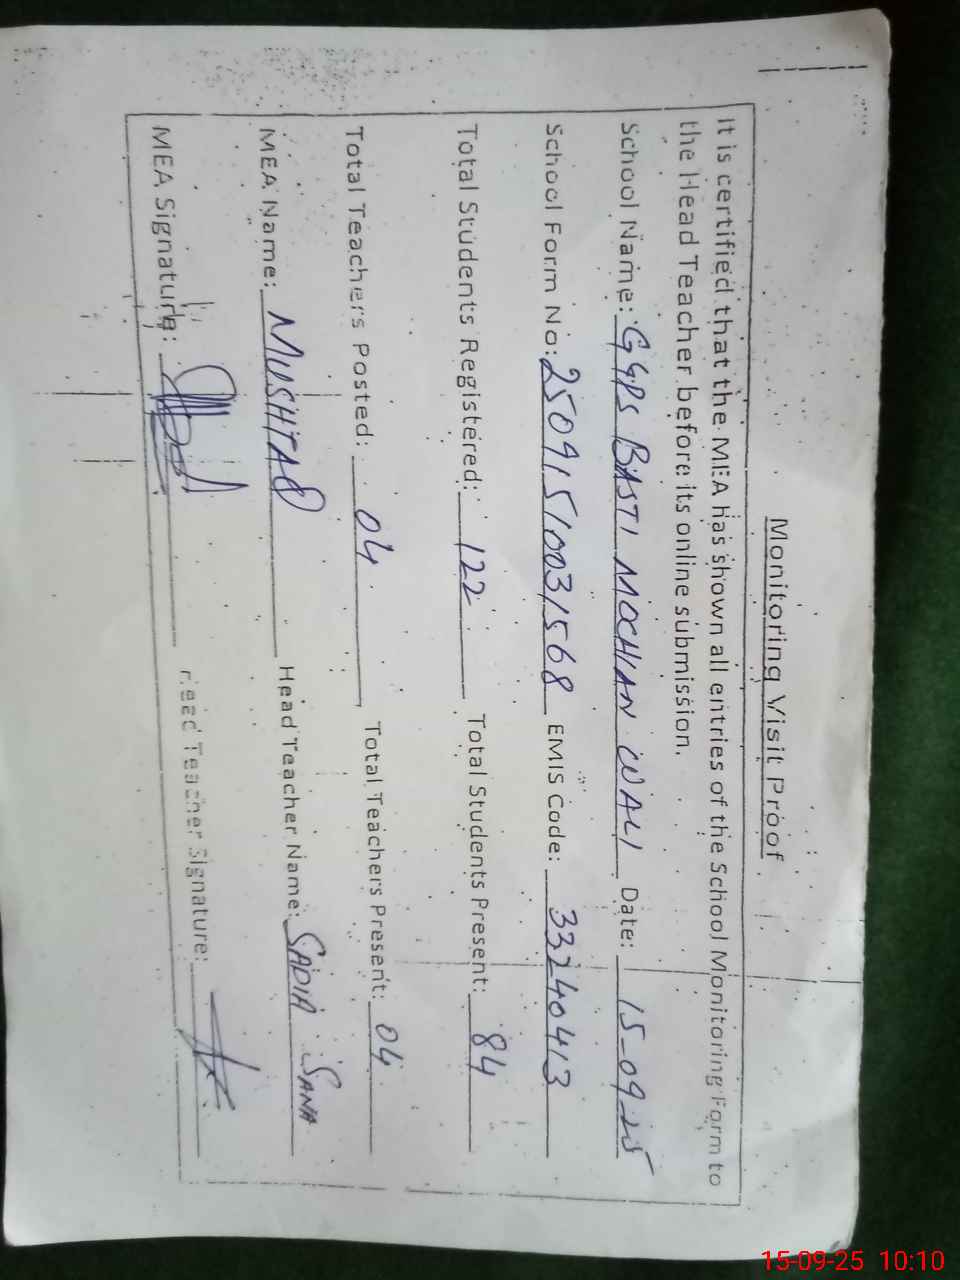 Monitoring Visit Proof
It is certified that the MEA has shown all entries of the School Monitoring Form to
the Head Teacher before its online submission.
School Name: GGPS BASTI MOCHIAN WALI Date: 15-09-25
School Form No: 25091510031568 EMIS Code: 33240413
Total Students Registered: 122 Total Students Present: 84
Total Teachers Posted: 04 Total Teachers Present: 04
MEA Name: MUSHTAQ Head Teacher Name: SADIA SANA
MEA Signature: Head Teacher Signature:
15-09-25 10:10